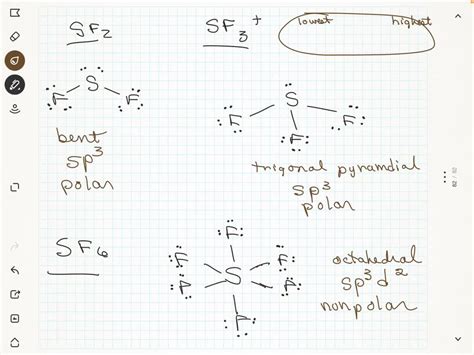 SF₂
SF₃⁺
lowest highest
S
F F
bent
sp³
polar
S
F F
F
trigonal pyramdial
sp³
polar
SF₆
F
F F
S
F F
F
octahedral
sp³d²
nonpolar